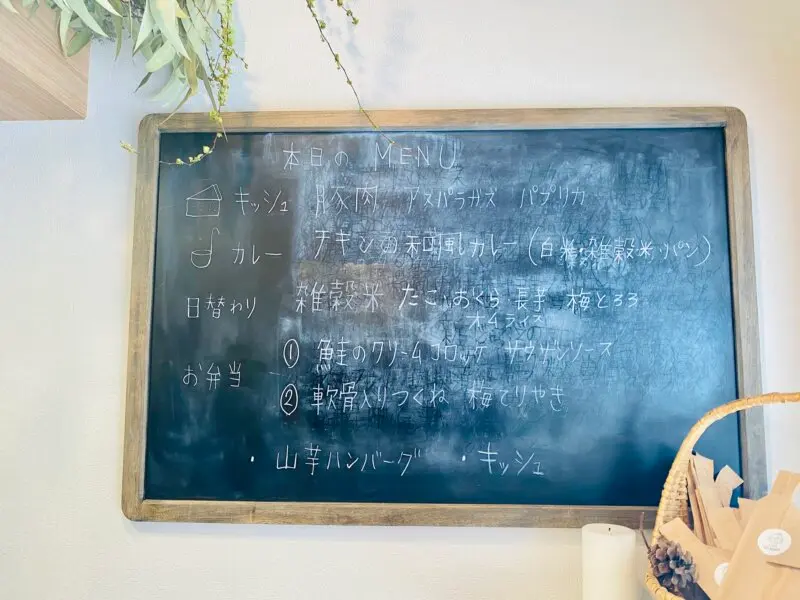 本日の MENU
キッシュ 豚肉 アスパラガス パプリカ
カレー チキンの和風カレー (白米・雑穀米・パン)
日替わり 雑穀米 たこ おくら 長芋 梅とろろ
オムライス
お弁当
① 鮭のクリームコロッケ サウザンソース
② 軟骨入りつくね 梅てりやき
・山芋ハンバーグ ・キッシュ